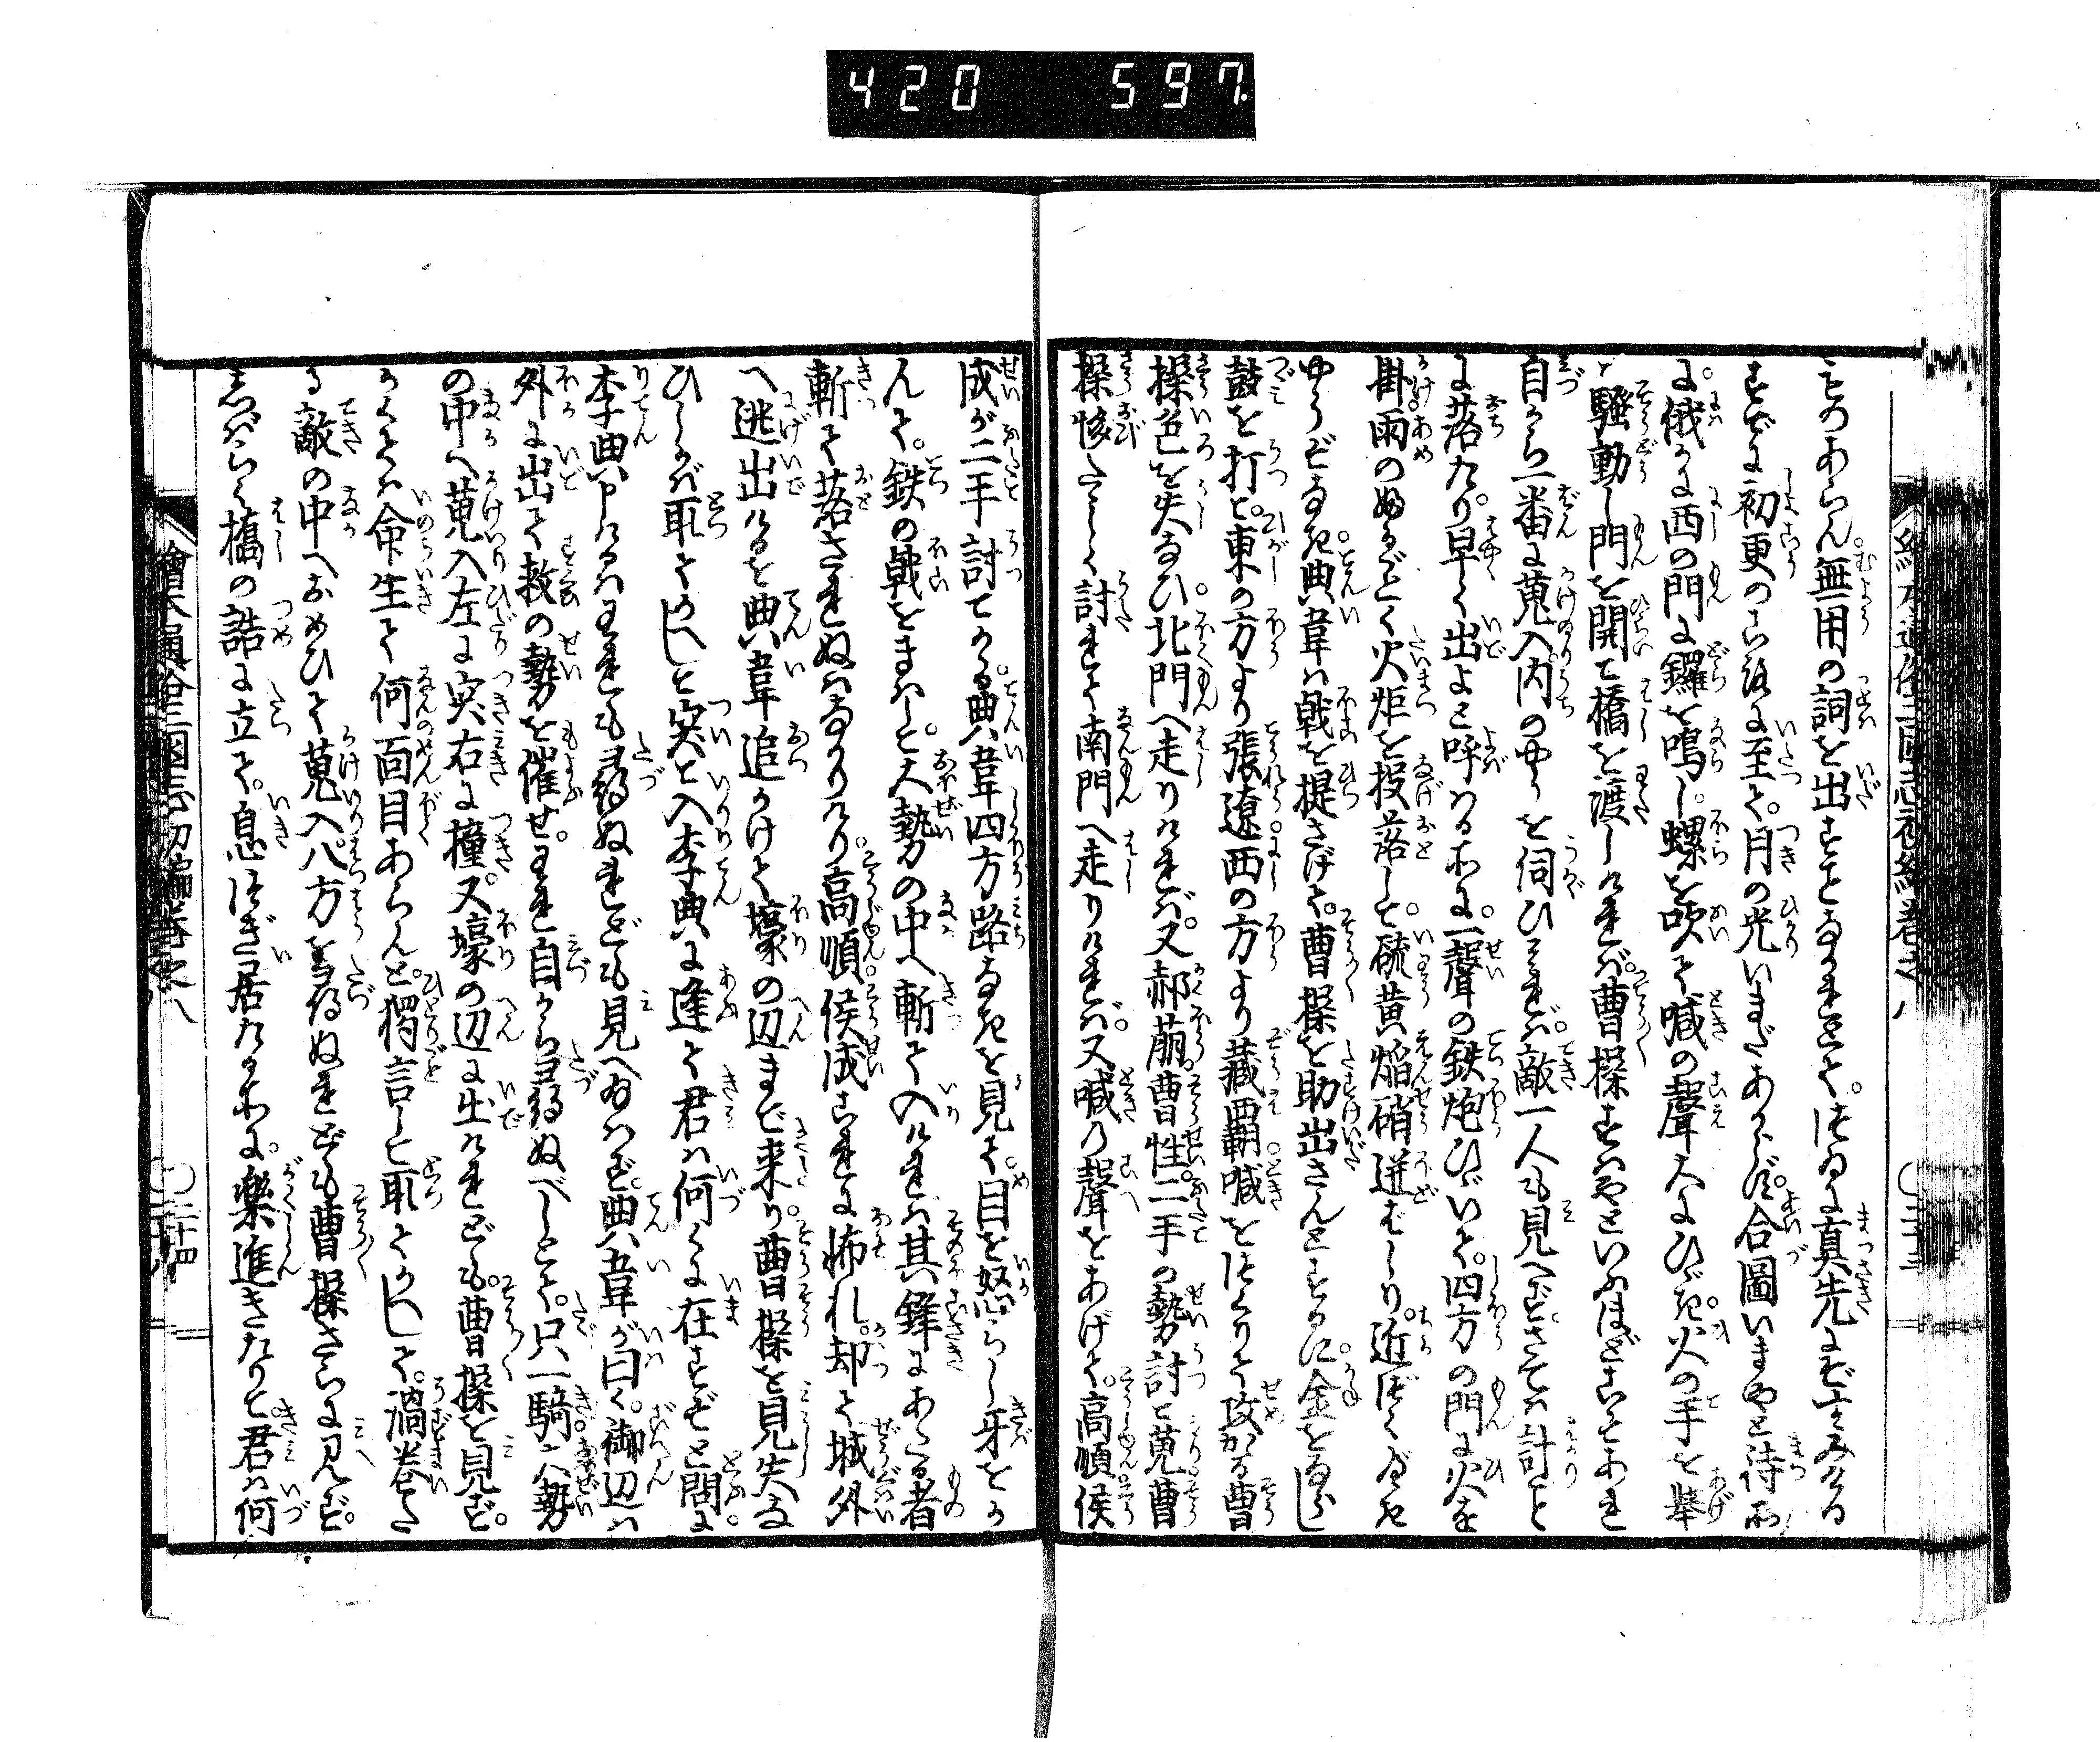 420 597
ものあらん。無用の詞を出すことなかれとて。つゐに真先にぞすゝみける
すでに初更のころに至て。月の光いまだあからず。合圖いまやと待所
に。俄かに西の門に鑼を鳴し。螺を吹て喊の聲大にひゞき。火の手を擧
騒動し門を開て橋を渡しければ。曹操すはやといふほどこそあれ
自から一番に蒐入内のやうを伺ひみれば。敵一人も見へず。さては計と
に落たり。早く出よと呼はる所に。一聲の鉄炮ひゞいて。四方の門に火を
掛。雨のふるごとく火炬を投落して。硫黄焔硝迸ばしり。近づくべき
やうぞなき。典韋は戟を提さげて。曹操を助出さんとするに。金をならし
鼓を打て。東の方より張遼西の方より藏覇喊をつくりて攻かゝる曹
操色を失なひ。北門へ走りければ。又郝萌曹性二手の勢討て蒐曹
操恢たゝく討れて南門へ走りければ。又喊の聲をあげて。高順侯
成が二手討てかゝる。典韋四方路なきを見て。目を怒らし牙をか
んで。鉄の戟をまはして。大勢の中へ斬て入ければ其鋒にあたる者
斬て落されぬはなかりけり。高順侯成これに怖れ。却て城外
へ逃出けるを典韋追かけて壕の辺まで来り。曹操を見失な
ひしかば取てかへして突と入李典に逢て君は何くに在すぞと問に
李典申けるはわれも尋ぬれども見へ給はず。典韋が曰く。御辺は
外に出て救の勢を催せ。われ自から尋ぬべしとて。只一騎大勢
の中へ蒐入左に突右に撞。又壕の辺に出けれども。曹操を見ず。
かくては命生て何面目あらんと。獨言して取てかへして。渦巻た
る敵の中へおめひて蒐入。八方を尋ぬれども曹操さらに見へず。
しばらく橋の詰に立て。息つぎ居たる所に。樂進きたりて君は何
繪本通俗三國志初編巻之八
二十四